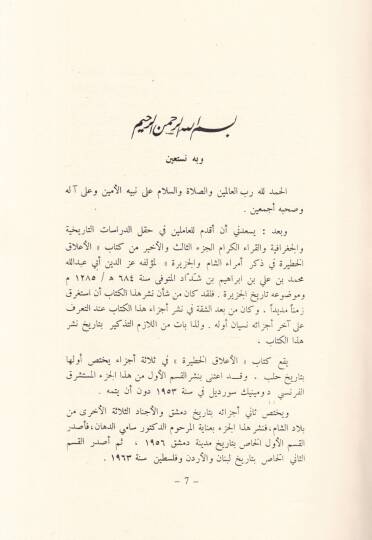 بسم الله الرحمن الرحيم
وبه نستعين
الحمد لله رب العالمين والصلاة والسلام على نبيه الأمين وعلى آله
وصحبه أجمعين .
وبعد : يسعدني أن أقدم للعاملين في حقل الدراسات التاريخية
والجغرافية والقراء الكرام الجزء الثالث والأخير من كتاب « الأعلاق
الخطيرة في ذكر أمراء الشام والجزيرة » لمؤلفه عز الدين أبي عبدالله
محمد بن علي بن ابراهيم بن شدّاد المتوفى سنة ٦٨٤ ه / ١٢٨٥ م
وموضوعه تاريخ الجزيرة . فلقد كان من شأن نشر هذا الكتاب أن استغرق
زمناً مديداً . وكان من بعد الشقة في نشر أجزاء هذا الكتاب عند التعرف
على آخر أجزائه نسيان أوله . ولذا بات من اللازم التذكير بتاريخ نشر
هذا الكتاب .
يقع كتاب « الأعلاق الخطيرة » في ثلاثة أجزاء يختص أولها
بتاريخ حلب . وقد اعتنى بنشر القسم الأول من هذا الجزء المستشرق
الفرنسي دومينيك سورديل في سنة ١٩٥٣ دون أن يتمه .
ويختص ثاني أجزائه بتاريخ دمشق والأجناد الثلاثة الأخرى من
بلاد الشام، فنشر هذا الجزء بعناية المرحوم الدكتور سامي الدهان، فأصدر
القسم الأول الخاص بتاريخ مدينة دمشق ١٩٥٦ ، ثم أصدر القسم
الثاني الخاص بتاريخ لبنان والأردن وفلسطين سنة ١٩٦٣ .
– 7 –